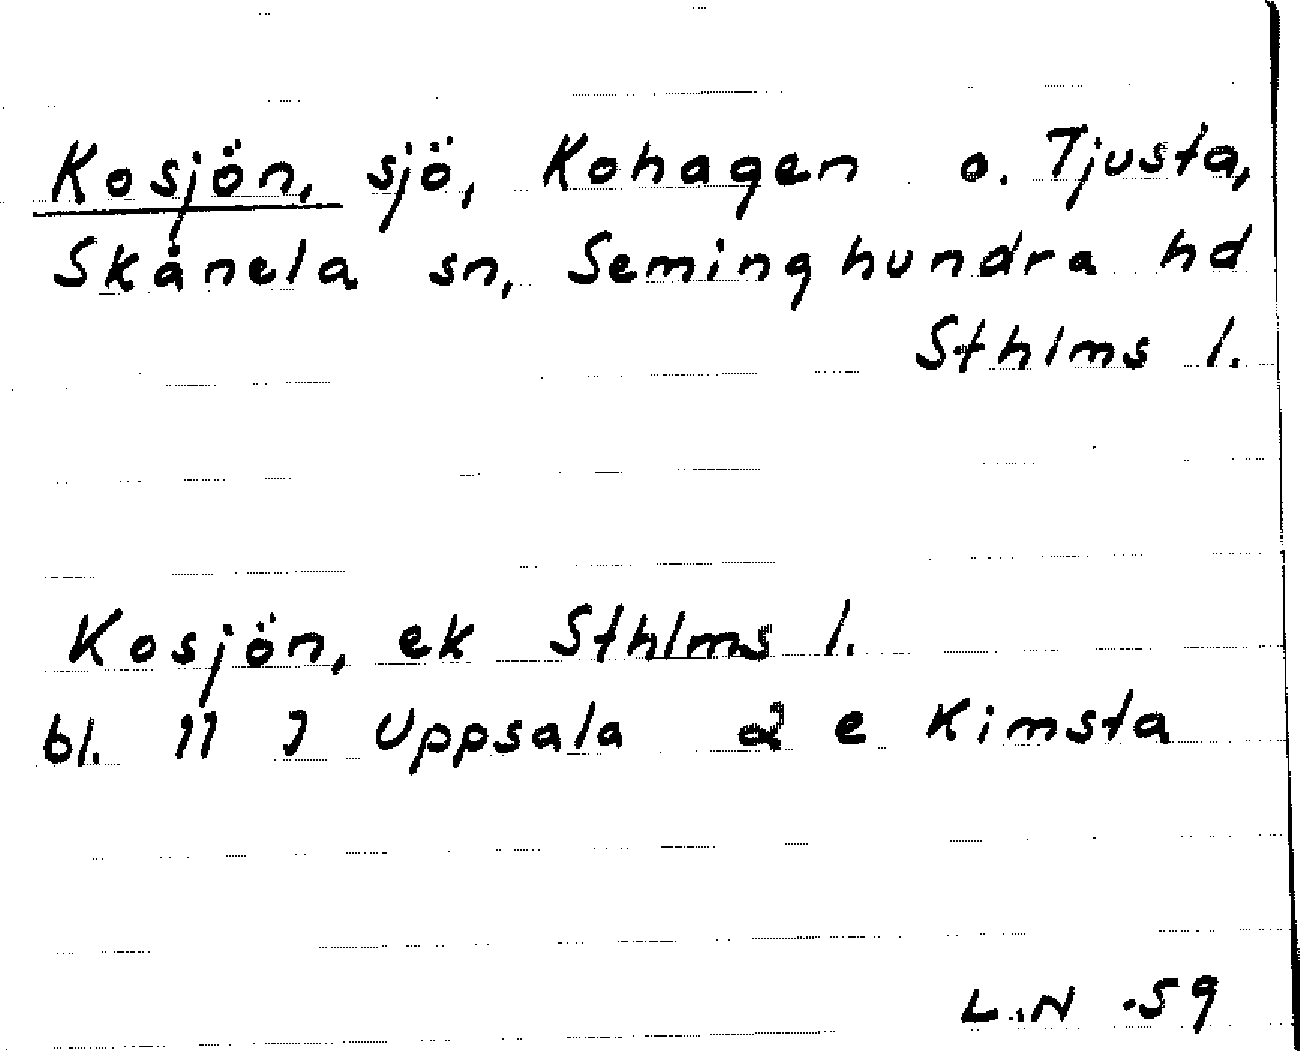 Kosjön, sjö, Kohagen o. Tjusta,
Skånela sn, Seminghundra hd
Sthlms l.
Kosjön, ek Sthlms l.
bl. 11 I Uppsala d2 e Kimsta
L.N -59